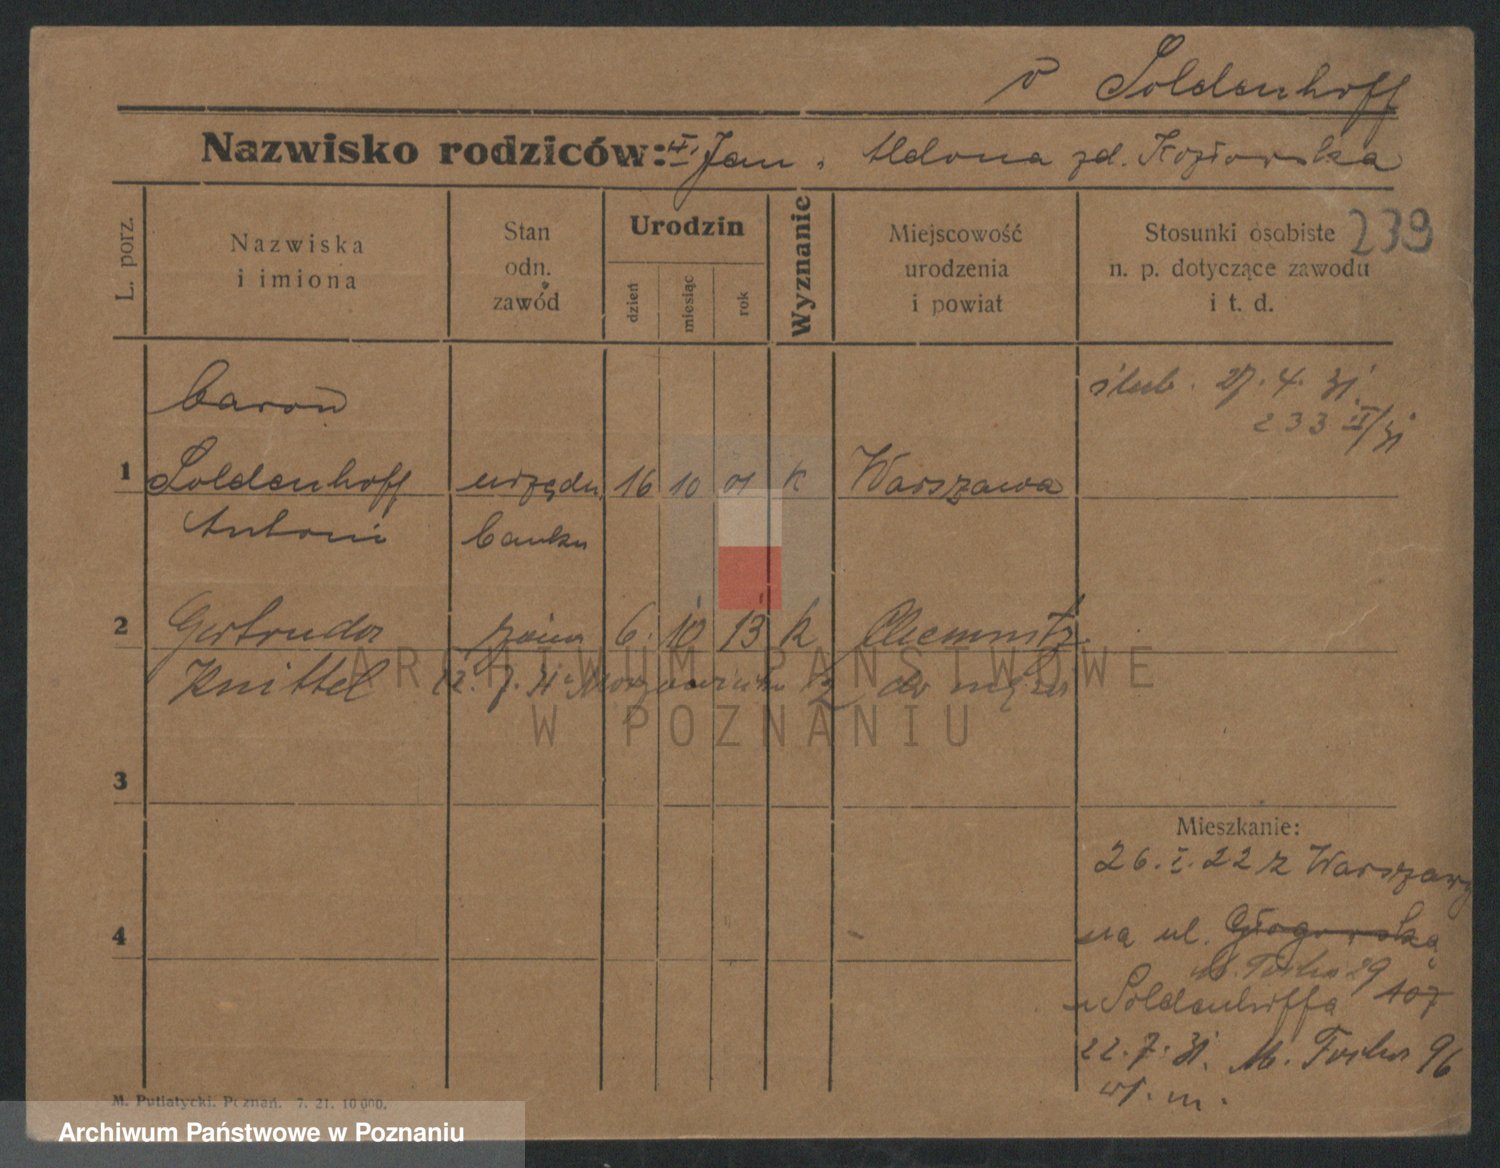 v Soldenhoff
Nazwisko rodziców: Jan, Aldona zd. Kozłowska
239
L. porz.
Nazwiska
i imiona
Stan
odn.
zawód
Urodzin
dzień
miesiąc
rok
Wyznanie
Miejscowość
urodzenia
i powiat
Stosunki osobiste
n. p. dotyczące zawodu
i t. d.
baron
ślub. 27. 4. 31.
233 II/31
1 Soldenhoff urzędn. 16 10 01 k Warszawa
Antoni banku
2 Gertruda żona 6. 10 13 k Chemnitz
Knittel 12. 7. 31 do męża
3
Mieszkanie:
26. I. 22 z Warszawy
na ul. Głogowska
4
M. Focha 29 107
u Soldenhoffa
22. 7. 31. M. Focha 96
wł. m.
M. Putiatycki. Poznań. 7. 21. 10000.
ARCHIWUM PAŃSTWOWE
W POZNANIU
Archiwum Państwowe w Poznaniu